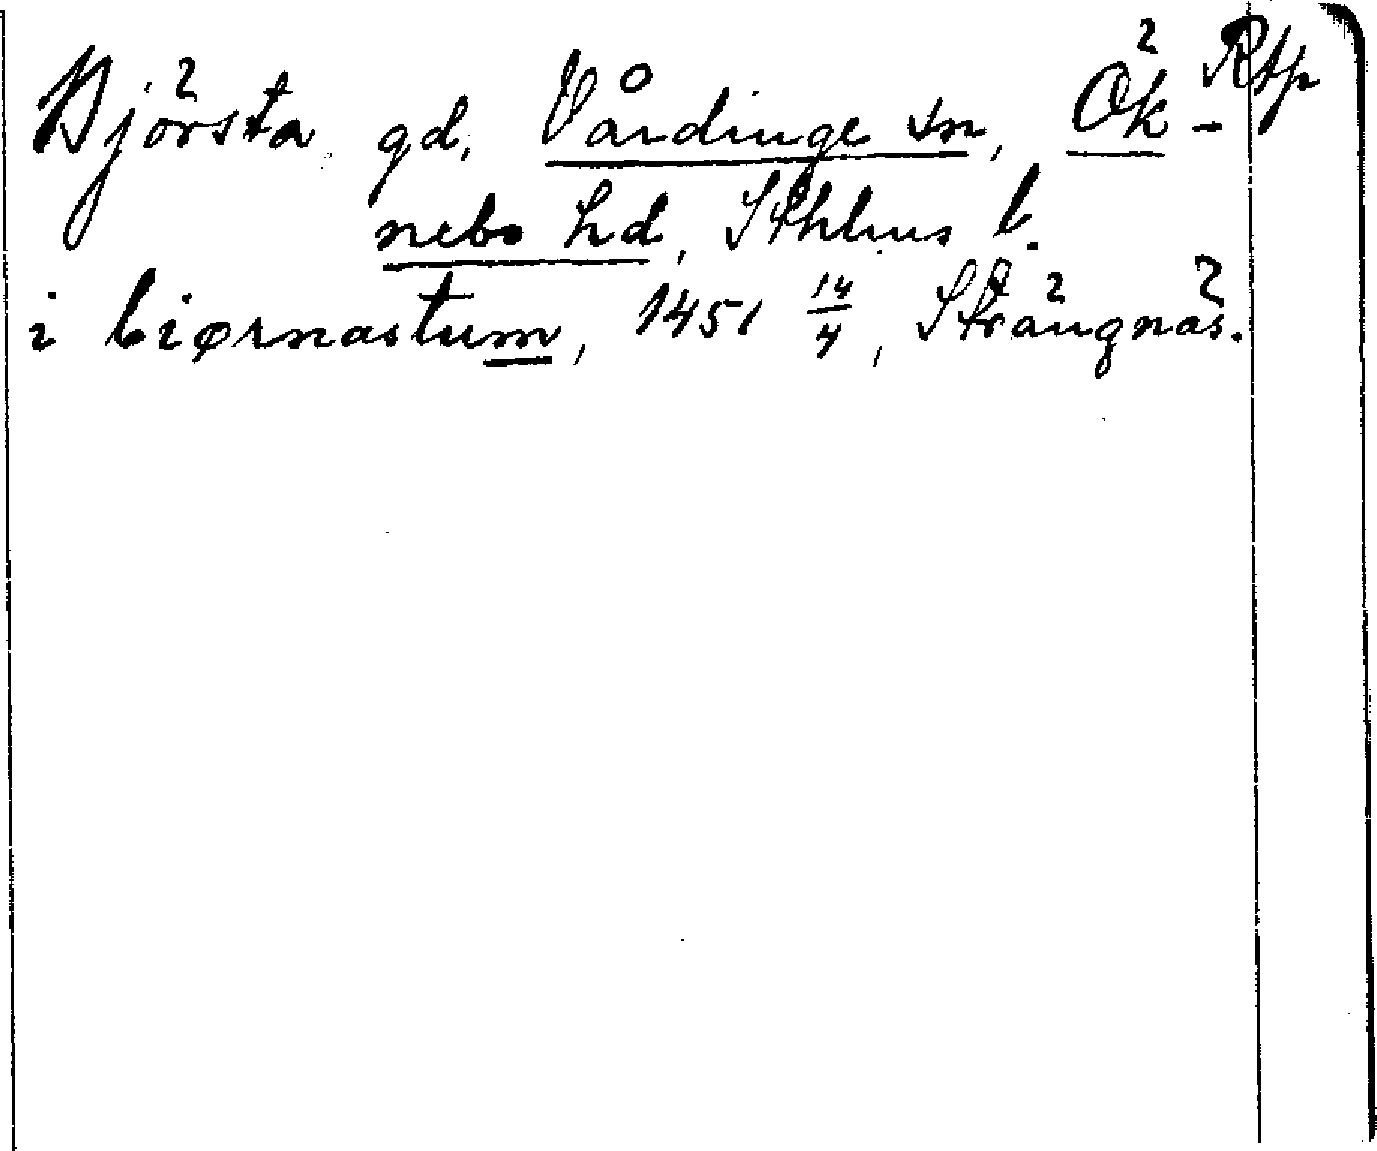 Björsta gd, Vårdinge sn, Ök- Rtp
nebo hd, Sthlms l.
i biørnastum, 1451 14/4, Strängnäs.